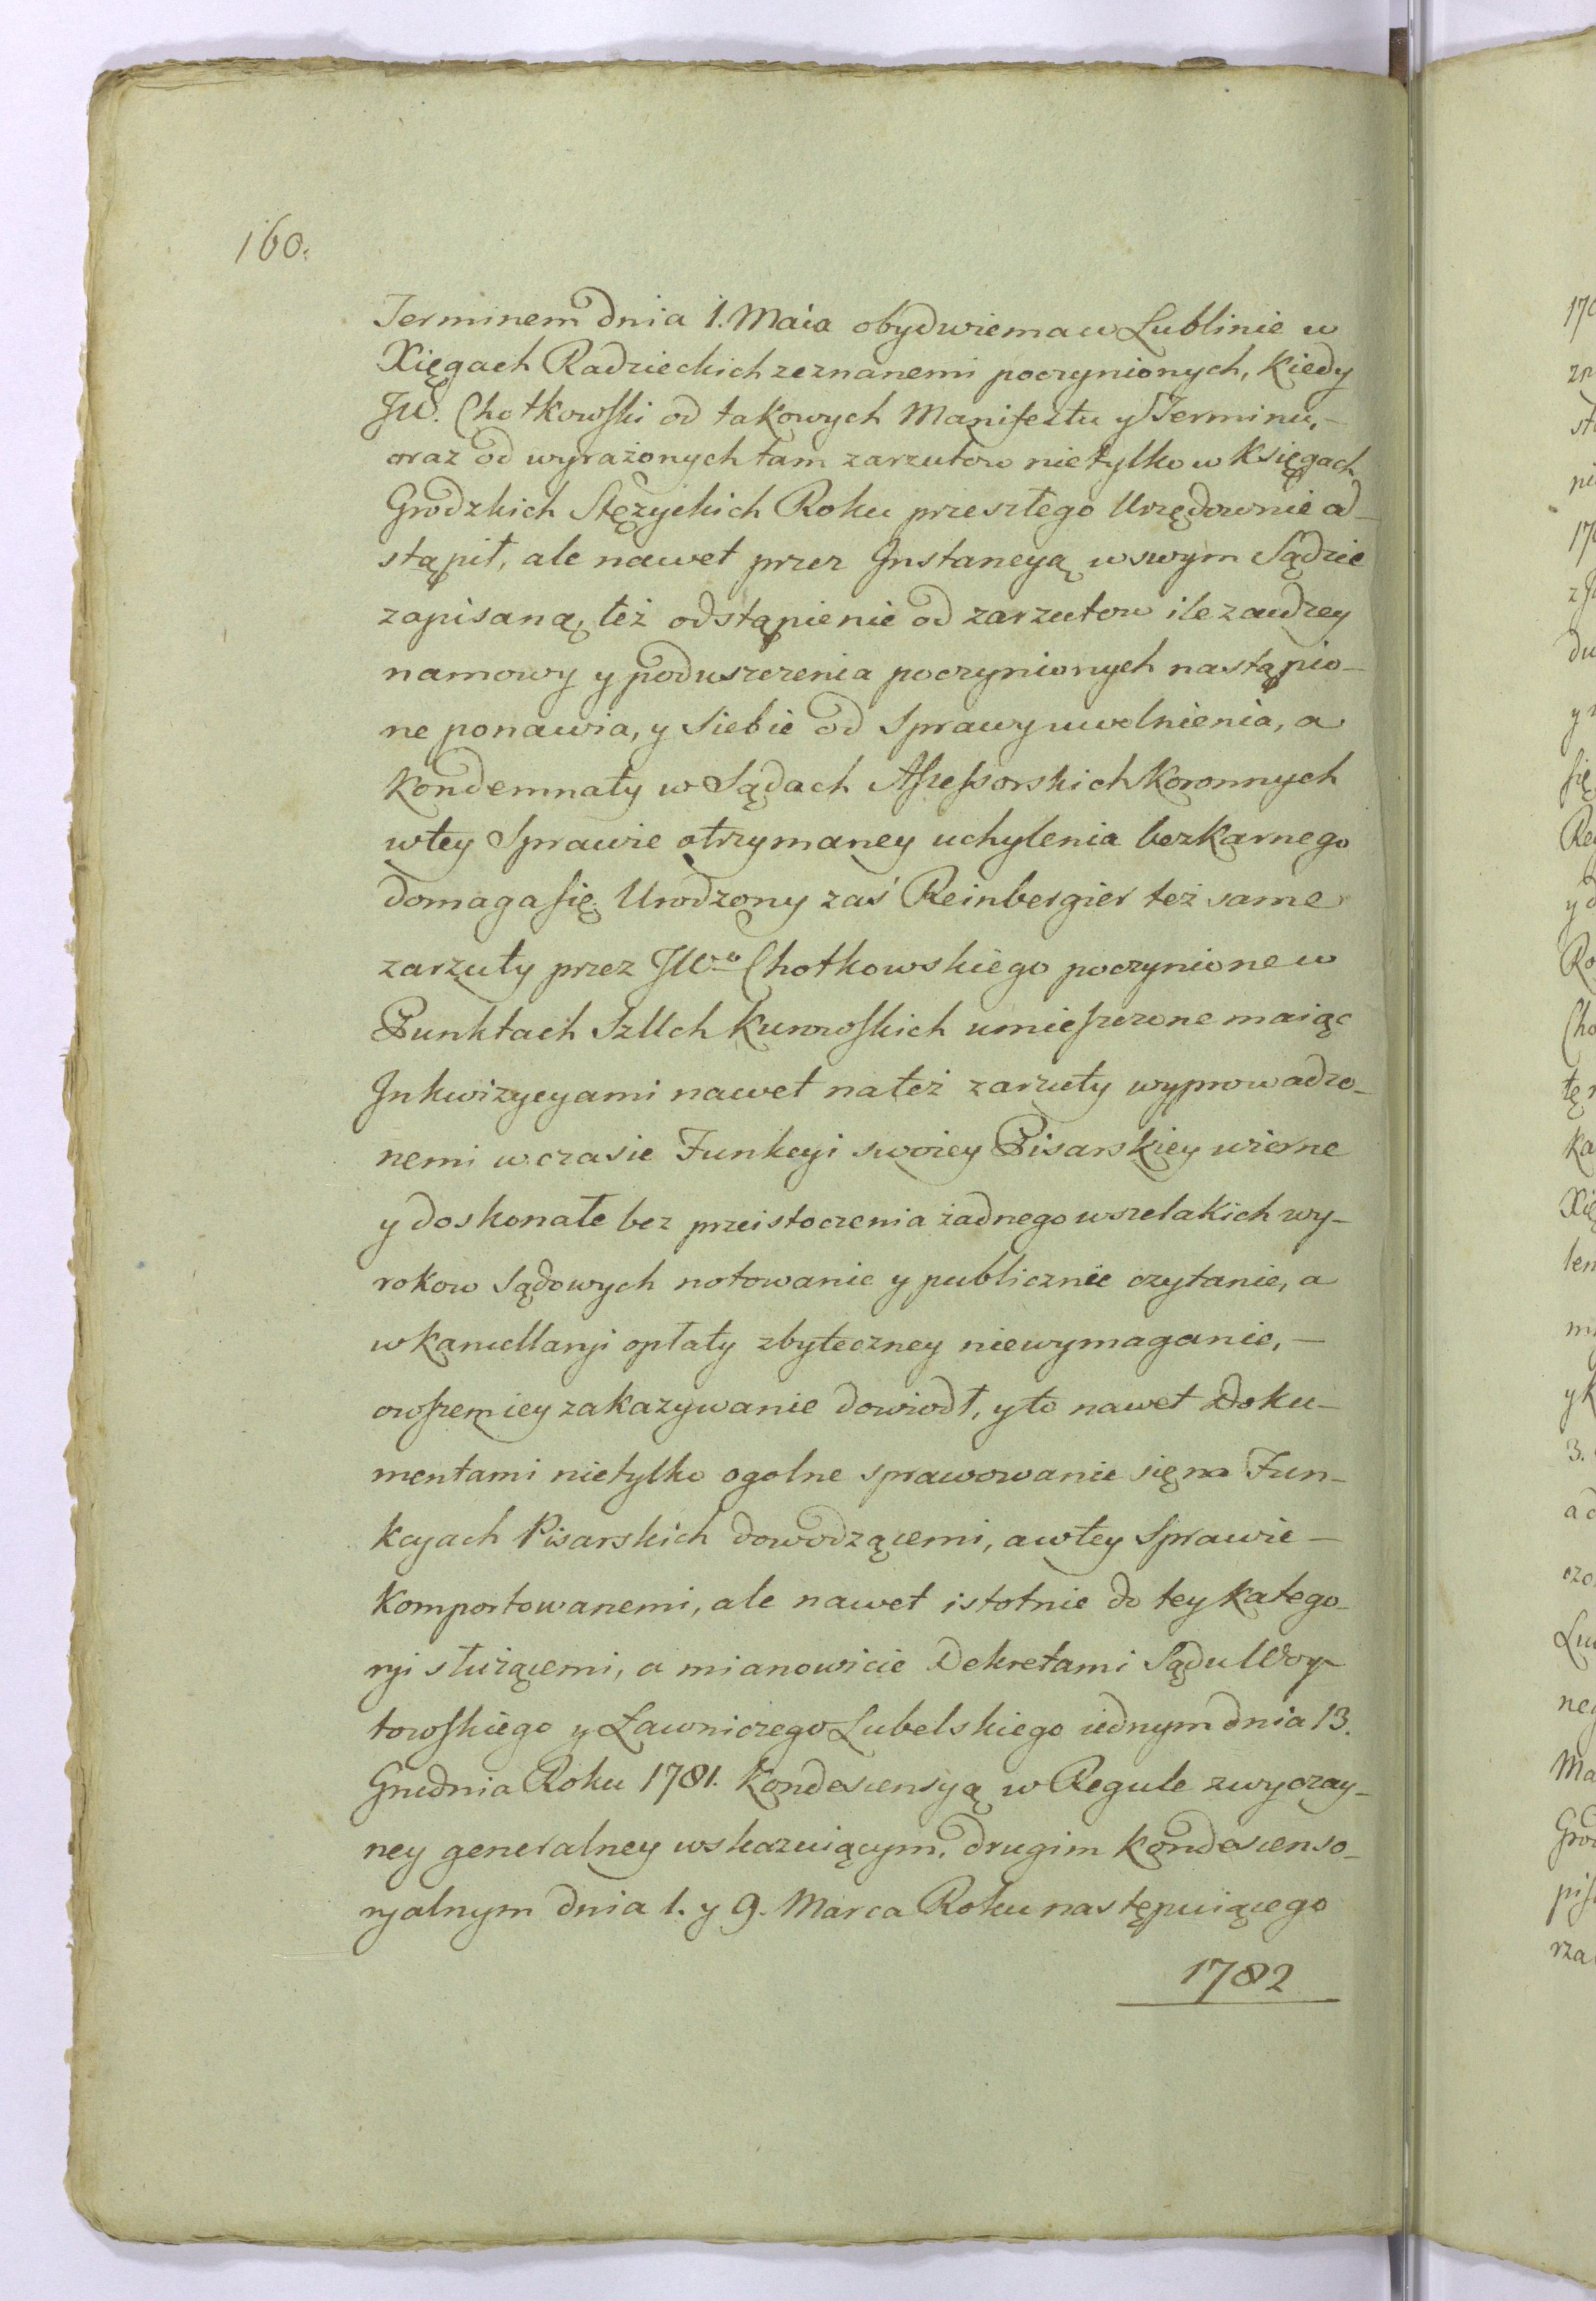 160.
Terminem dnia 1. Maia obydwiema w Lublinie w
Xięgach Radzieckich zeznanemi poczynionych, kiedy
JW. Chotkowski od takowych Manifestu y Terminu,-
oraz od wyrażonych tam zarzutow nietylko w Księgach
Grodzkich Stężyckich Roku przeszłego Urzędownie od-
stąpił, ale nawet przez Instancyą w swym Sądzie
zapisaną, też odstąpienie od zarzutow ile z cudzey
namowy y poduszczenia poczynionych nastąpio-
ne ponawia, y siebie od Sprawy uwolnienia, a
Kondemnaty w Sądach Assessorskich Koronnych
w tey Sprawie otrzymaney uchylenia bezkarnego
domaga się. Urodzony zaś Reinbergier też same
zarzuty przez JWo Chotkowskiego poczynione w
Punktach Szllch Kurowskich umieszczone maiąc
Inkwizycyami nawet na też zarzuty wyprowadzo-
nemi w czasie Funkcyi swoiey Pisarskiey wierne
y doskonałe bez przeistoczenia żadnego wszelakich wy-
rokow Sądowych notowanie y publicznie czytanie, a
w Kancellaryi opłaty zbyteczney niewymaganie, -
owszem iey zakazywanie dowiodł, y to nawet Doku-
mentami nietylko ogolne sprawowanie się na Fun-
kcyach Pisarskich dowodzącemi, a w tey Sprawie -
Komportowanemi, ale nawet istotnie do tey Katego-
ryi służącemi, a mianowicie Dekretami Sądu Woy-
towskiego y Ławniczego Lubelskiego iednym dnia 13.
Grudnia Roku 1781. Kondescensyą w Regule zwyczay-
ney generalney wskazuiącym, drugim Kondescenso-
ryalnym dnia 1. y 9. Marca Roku następuiącego
1782